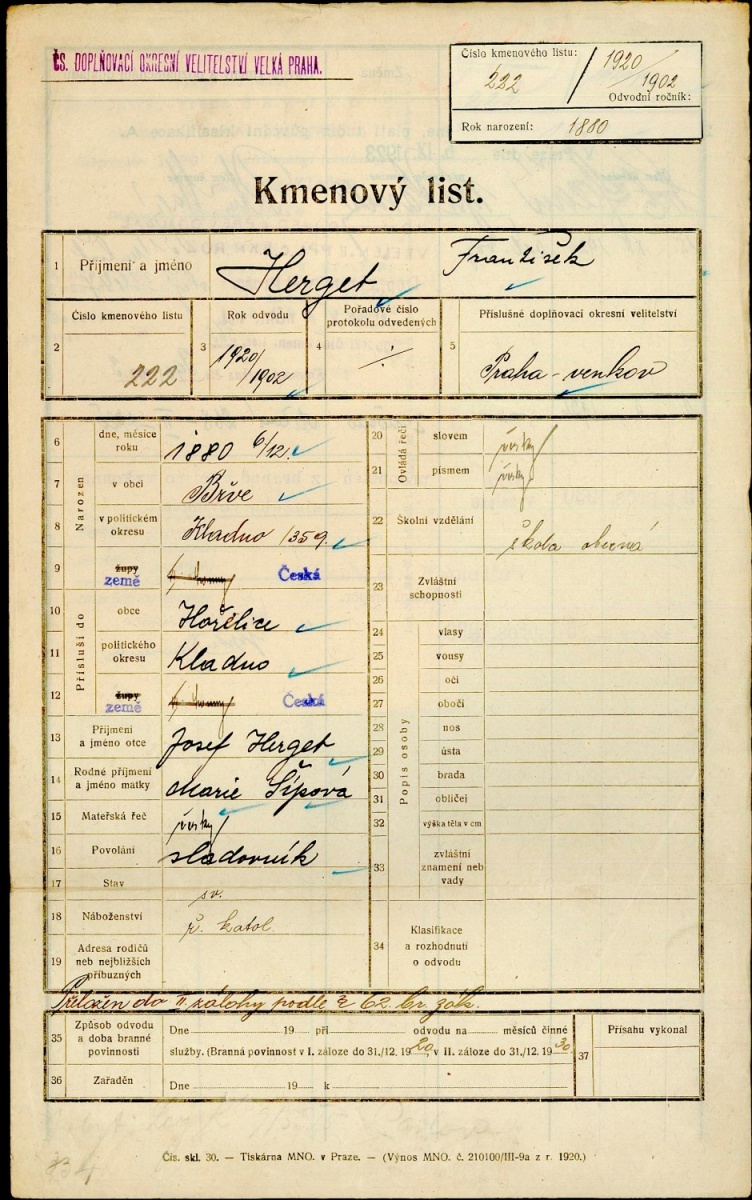 ČS. DOPLŇOVACÍ OKRESNÍ VELITELSTVÍ VELKÁ PRAHA.
Číslo kmenového listu:
222 / 1920/1902
Odvodní ročník:
Rok narození: 1880
Kmenový list.
1 Příjmení a jméno Herget František
2 Číslo kmenového listu 222
3 Rok odvodu 1920/1902
4 Pořadové číslo protokolu odvedených ·/·
5 Příslušné doplňovací okresní velitelství Praha-venkov
Narozen
6 dne, měsíce roku 1880 6/12.
7 v obci Břve
8 v politickém okresu Kladno /359.
9 župy země Česká
Přísluší do
10 obce Hořelice
11 politického okresu Kladno
12 župy země Česká
13 Příjmení a jméno otce Josef Herget
14 Rodné příjmení a jméno matky Marie Šípová
15 Mateřská řeč česky
16 Povolání sladovník
17 Stav sv.
18 Náboženství ř. katol.
19 Adresa rodičů neb nejbližších příbuzných
Ovládá řeči
20 slovem česky
21 písmem česky
22 Školní vzdělání škola obecná
23 Zvláštní schopnosti
Popis osoby
24 vlasy
25 vousy
26 oči
27 obočí
28 nos
29 ústa
30 brada
31 obličej
32 výška těla v cm
33 zvláštní znamení neb vady
34 Klasifikace a rozhodnutí o odvodu
do II. zálohy podle § 62 br. zák.
35 Způsob odvodu a doba branné povinnosti
Dne 19 při odvodu na měsíců činné
služby. (Branná povinnost v I. záloze do 31./12. 1920, v II. záloze do 31./12. 1930.
36 Zařaděn Dne 19 k
37 Přísahu vykonal
Čís. skl. 30. — Tiskárna MNO. v Praze. — (Výnos MNO. č. 210100/III-9a z r. 1920.)